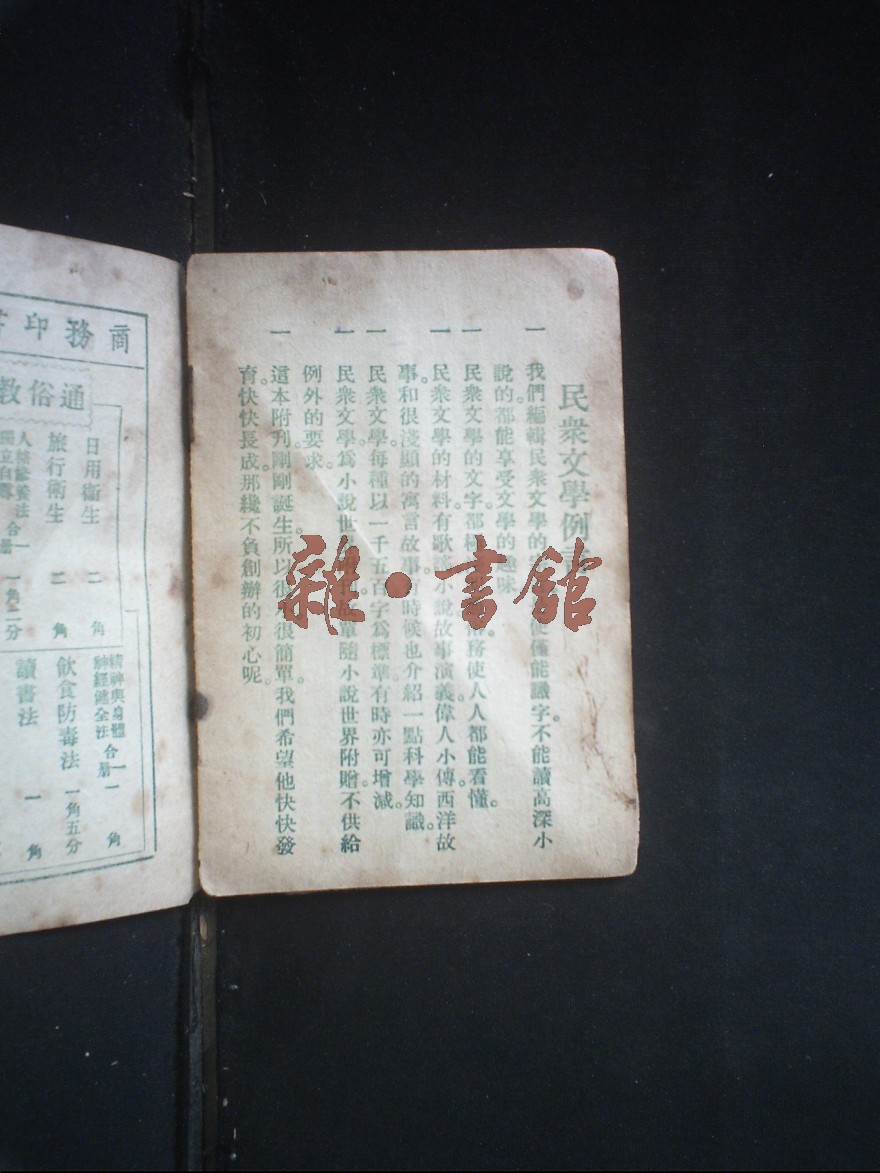 民衆文學例言
一 我們編輯民衆文學的 使僅能識字不能讀高深小
說的都能享受文學的趣味
一 民衆文學的文字 務使人人都能看懂。
一 民衆文學的材料有歌 小說故事演義偉人小傳西洋故
事和很淺顯的寓言故事 時候也介紹一點科學知識。
一 民衆文學每種以一千五百字爲標準有時亦可增減。
一 民衆文學爲小說世界 單隨小說世界附贈不供給
例外的要求。
一 這本附刊剛剛誕生。所以很 很簡單。我們希望他快快發
育。快快長成。那纔不負創辦的初心呢。
雜·書館
商務印
通俗教
日用衞生 二角
旅行衞生 二角
合一册 一角二分
精神與身體
神經健全法 合一册 一角
飲食防毒法 一角五分
讀書法 一角